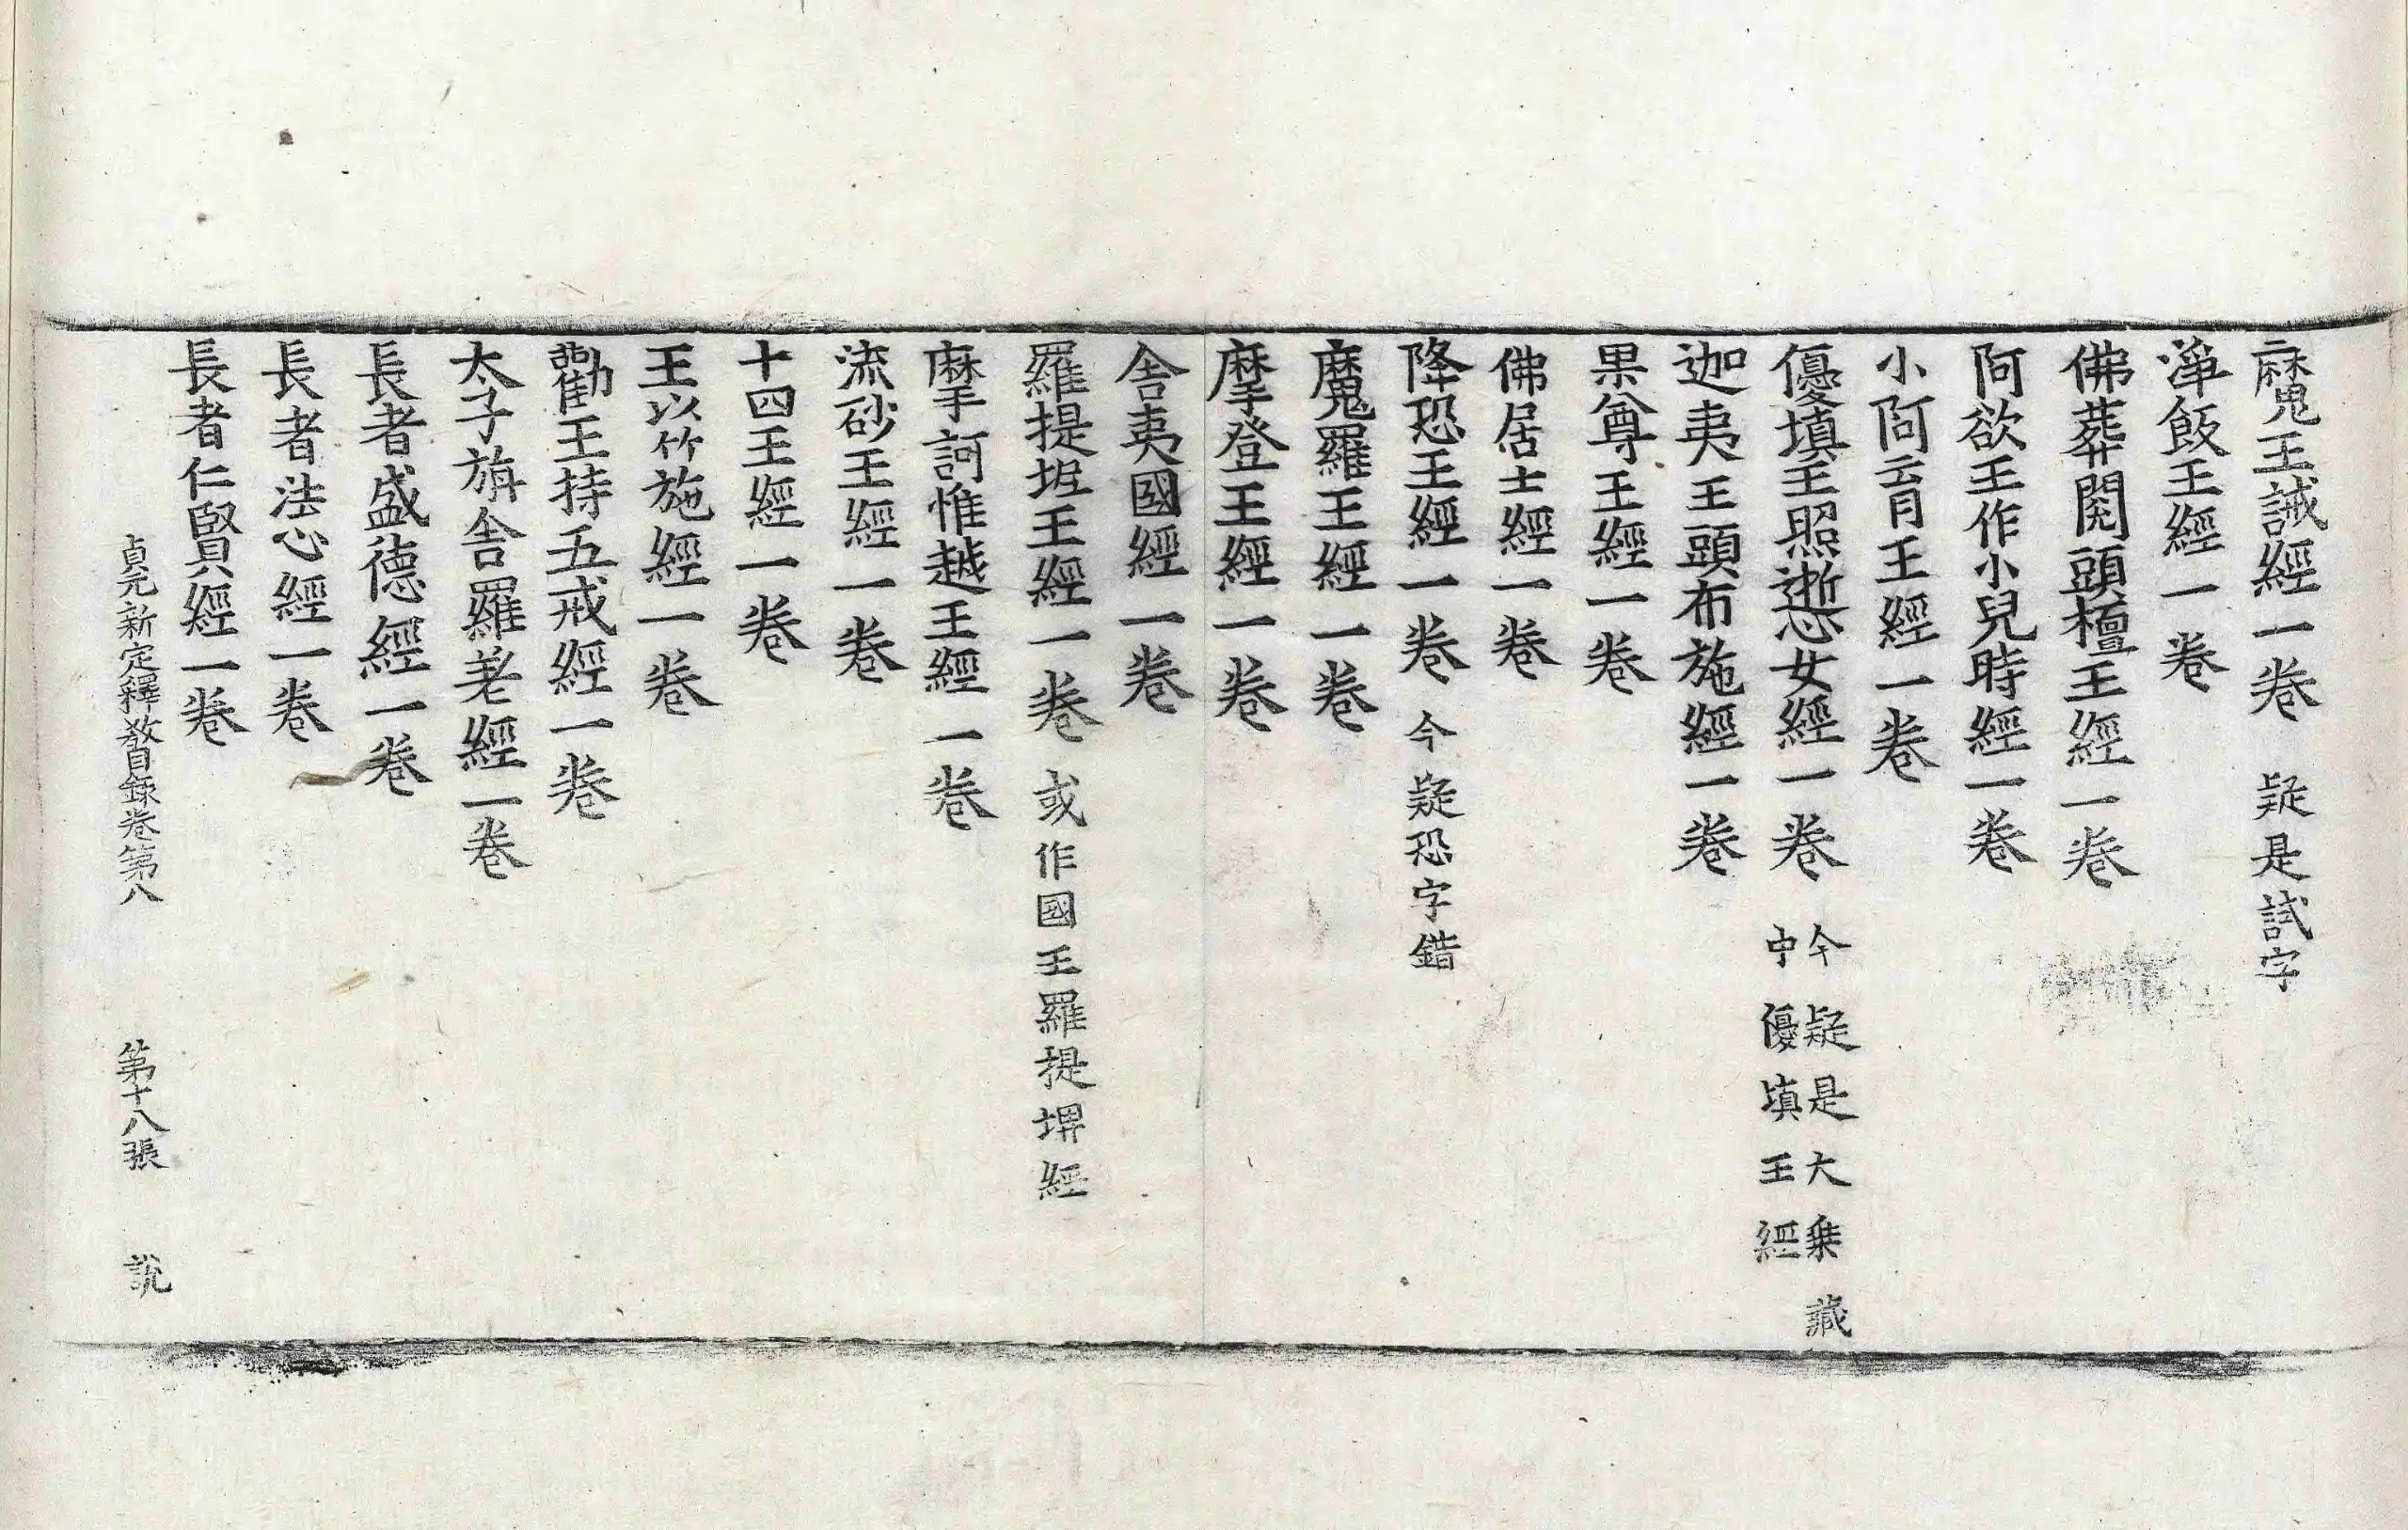 魔王誡經一卷 疑是試字
淨飯王經一卷
佛葬閱頭檀王經一卷
阿欲王作小兒時經一卷
小阿育王經一卷
優塡王照逝心女經一卷 今疑是大乘藏
中優塡王經
迦夷王頭布施經一卷
果尊王經一卷
佛居士經一卷
降恐王經一卷 今疑恐字錯
魔羅王經一卷
摩登王經一卷
舍夷國經一卷
羅提坻王經一卷 或作國王羅提堺經
摩訶惟越王經一卷
流砂王經一卷
十四王經一卷
王以竹施經一卷
勸王持五戒經一卷
太子旃舍羅老經一卷
長者盛德經一卷
長者法心經一卷
長者仁賢經一卷
貞元新定釋教目錄卷第八 第十八張 說